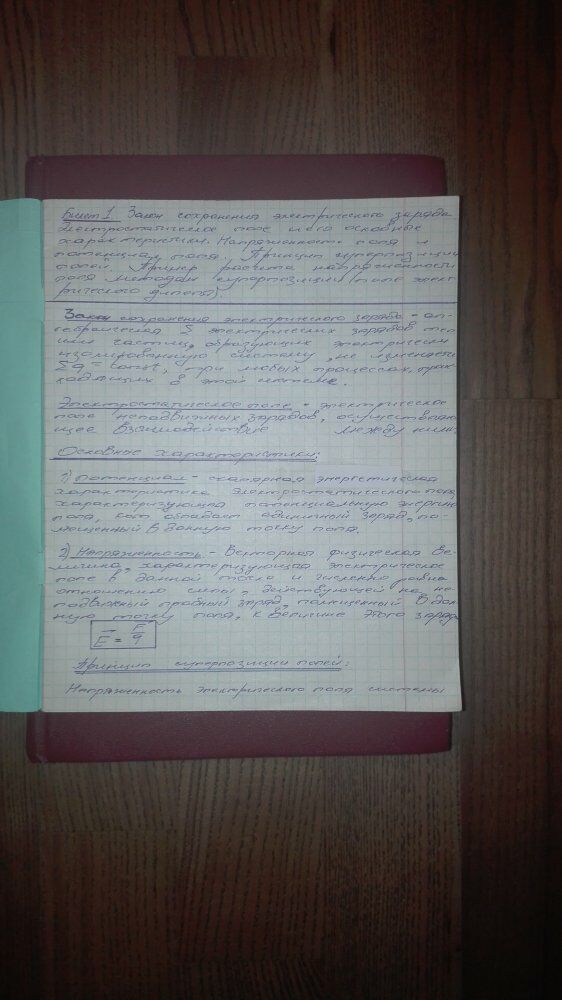 Билет 1. Закон сохранения электрического заряда.
Электростатическое поле и его основные
характеристики. Напряженность поля и
потенциал поля. Принцип суперпозиции
полей. Пример расчета напряженности
поля методом суперпозиции (поле элект-
рического диполя).
Закон сохранения электрического заряда - ал-
гебраическая Σ электрических зарядов тел
или частиц, образующих электрически
изолированную систему, не изменяется
Σq = const, при любых процессах, прои
ходящих в этой системе.
Электростатическое поле - электрическое
поле неподвижных зарядов, осуществляю-
щее взаимодействие между ними.
Основные характеристики:
1) Потенциал - скалярная энергетическая
характеристика электростатического поля,
характеризующая потенциальную энергию
поля, кот. обладает единичный заряд, по-
мещенный в данную точку поля.
2) Напряженность - векторная физическая ве-
личина, характеризующая электрическое
поле в данной точке и численно равна
отношению силы, действующей на не-
подвижный пробный заряд, помещенный в дан-
ную точку поля, к величине этого заряда
E = F/q
Принцип суперпозиции полей:
Напряженность электрического поля системы